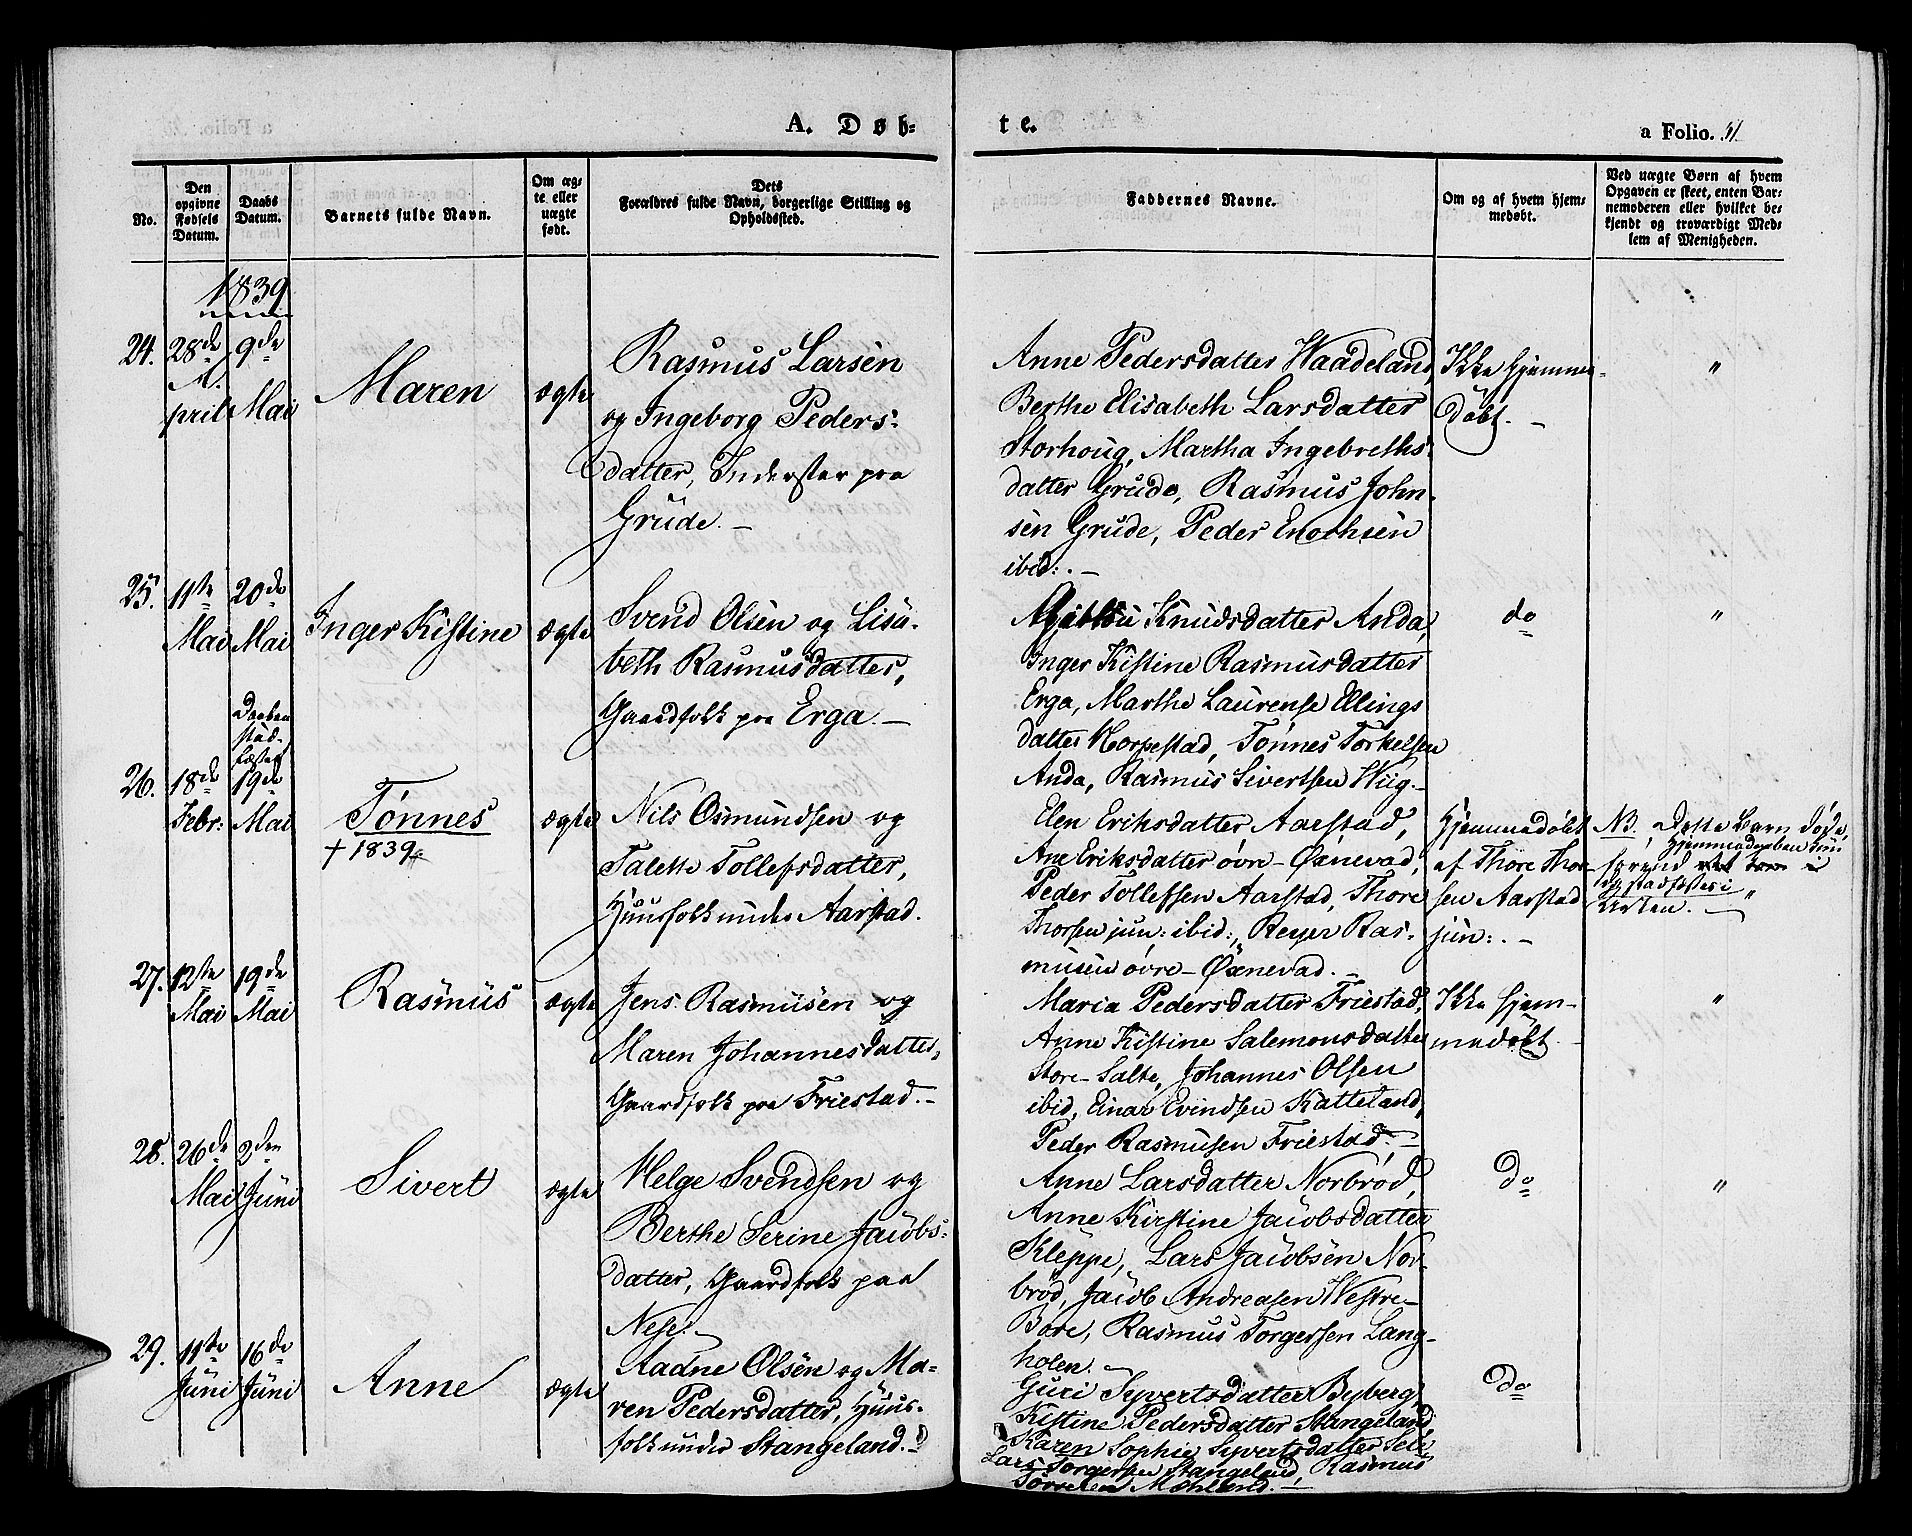 A. Døb-
te.
a Folio. 51.
No.
Den
opgivne
Fødsels
Datum.
Daabs
Datum.
Barnets fulde Navn.
Om æg-
te eller
uægte
født.
Dets
Forældres fulde Navn, borgerlige Stilling og
Opholdssted.
Faddernes Navne.
Om og af hvem hjem-
medøbt.
Ved uægte Børn af hvem
Opgaven er skeet, enten Bar-
nemoderen eller hvilket be-
kjendt og troværdigt Med-
lem af Menigheden.
1839
24.
28de
April
9de
Mai
Maren
ægte
Rasmus Larsen
og Ingeborg Peders-
datter, Inderster paa
Grude. –
Anne Pedersdatter Waadeland,
Berthe Elisabeth Larsdatter
Storhoug, Martha Ingebreths-
datter Grude, Rasmus John-
sen Grude, Peder Enochsen
ibid:. –
Ikke hjemme-
døbt. –
"
25.
11te
Mai
20de
Mai
Inger Kistine
ægte
Svend Olsen og Lisa-
beth Rasmusdatter,
Gaardfolk paa Erga. –
Knudsdatter Anda,
Inger Kistine Rasmusdatter
Erga, Marthe Laurense Ellings
datter Horpestad, Tønnes Torkelsen
Anda, Rasmus Sivertsen Wiig. –
do
"
26.
18de
Febr:
Daaben
stad-
fæstet
19de
Mai
Tønnes
+ 1839
ægte
Nils Osmundsen og
Talette Tollefsdatter,
Huusfolk under Aarstad.
Elen Eriksdatter Aarstad,
Ane Eriksdatter øvre-Øxnevad,
Peder Tollefsen Aarstad, Thore
Thorsen jun: ibid:, Reyer Ras-
musen øvre-Øxnevad. –
Hjemmedøbt
af Thore Thor-
sen Aarstad
jun:. –
NB. Dette Barn døde,
Hjemmedaaben
førend
og stadfæstes i
Kirken. –
"
27.
12te
Mai
19de
Mai
Rasmus
ægte
Jens Rasmusen og
Maren Johannesdatter,
Gaardfolk paa Friestad. –
Maria Pedersdatter Friestad,
Anne Kistine Salemonsdatter
Store-Salte, Johannes Olsen
ibid, Einar Evindsen Katteland,
Peder Rasmusen Friestad. –
Ikke hjem-
medøbt. –
"
28.
26de
Mai
2den
Juni
Sivert
ægte
Helge Svendsen og
Berthe Serine Jacobs-
datter, Gaardfolk paa
Nese. –
Anne Larsdatter Norbrød,
Anne Kirstine Jacobsdatter
Kleppe, Lars Jacobsen Nor-
brød, Jacob Andreasen Westre-
Bore, Rasmus Torgersen Lang-
holen. –
Do
"
29.
11te
Juni
16de
Juni
Anne
ægte
Aadne Olsen og Ma-
ren Pedersdatter, Huus-
folk under Stangeland. –
Guri Syvertsdatter Byberg,
Kistine Pedersdatter Stangeland
Karen Sophie Syvertsdatter Sele,
Lars Torgersen Stangeland, Rasmus